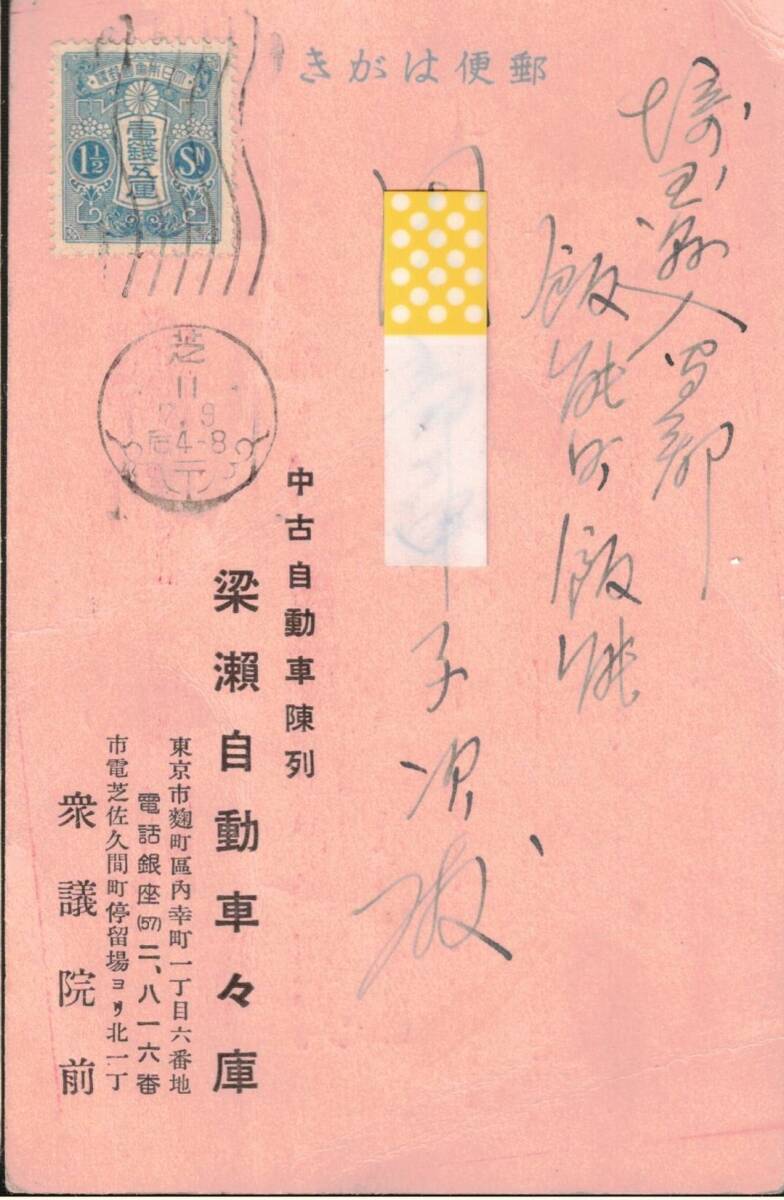 郵便はがき
大日本帝國郵便
壹錢五厘
1½ Sɴ
芝
11
7.9
后4-8
埼玉縣入間郡
飯能町飯能
子次殿
中古自動車陳列
梁瀬自動車々庫
東京市麴町區內幸町一丁目六番地
電話銀座(57)二、八一六番
市電芝佐久間町停留場ヨリ北一丁
衆議院前